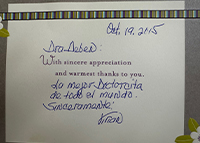 Oct. 19, 2015
Dra.
With sincere appreciation
and warmest thanks to you.
La mejor Doctorcita
de todo el mundo.
Sinceramente: